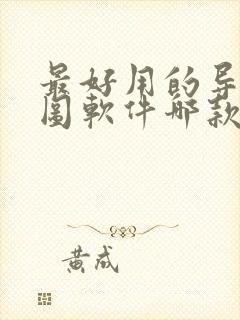 最好用的导
图软件哪款
黄成